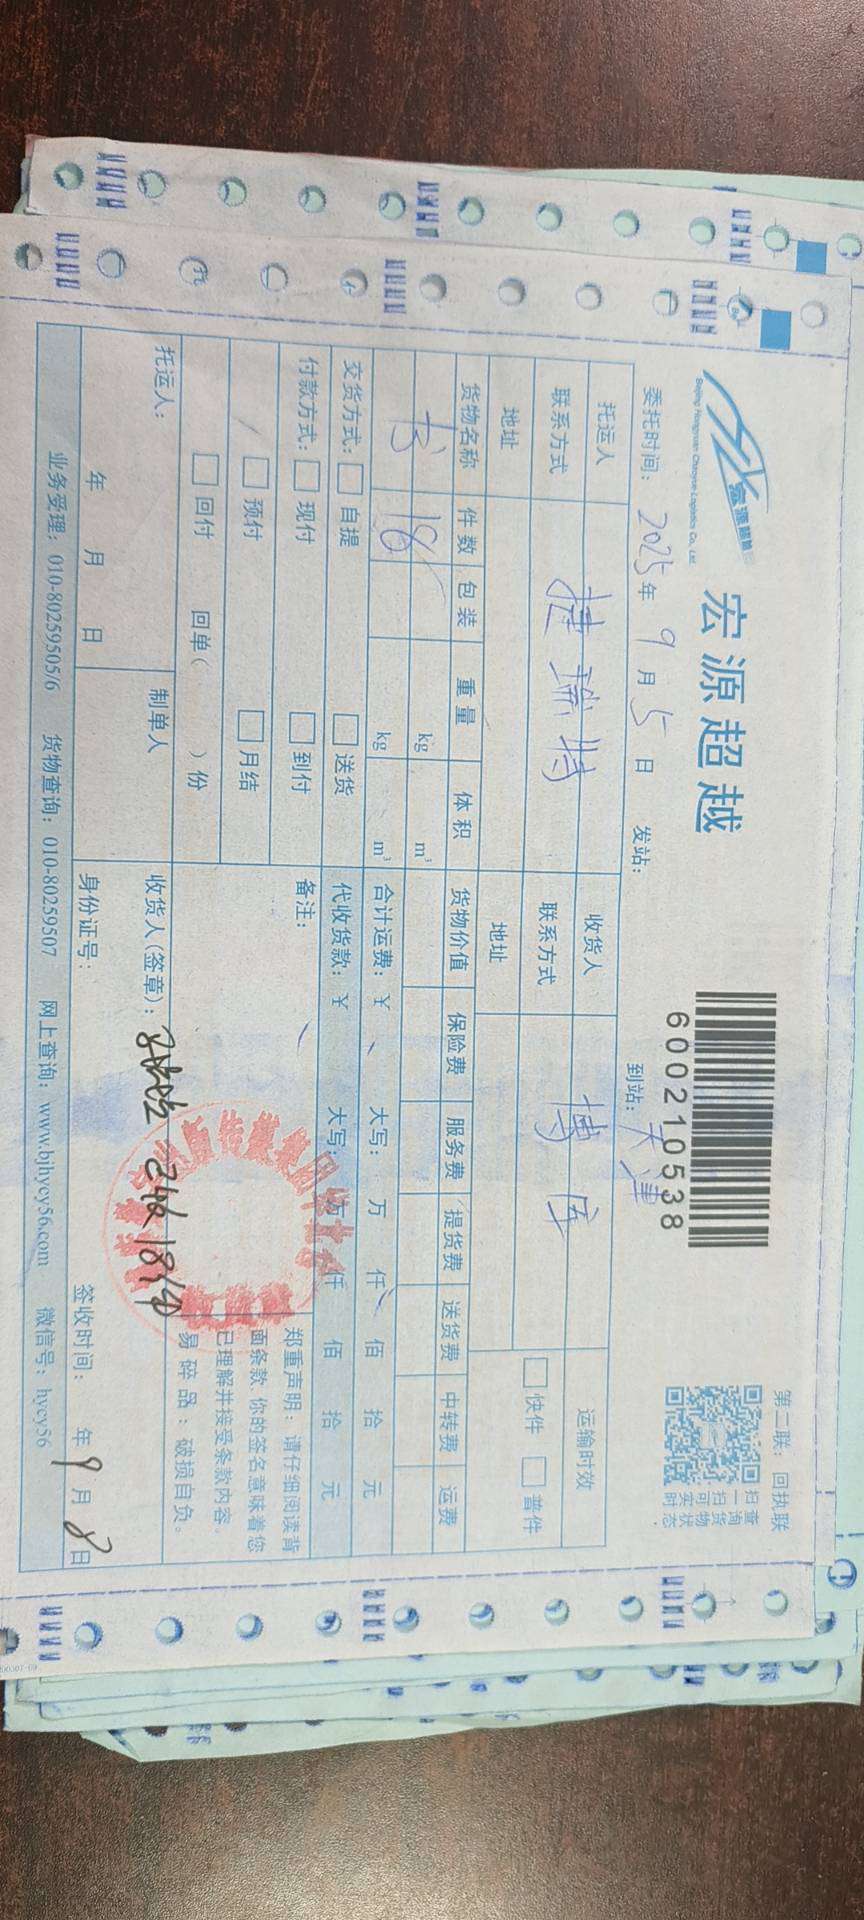 宏源超越
Beijing Hongyuan Chaoyue Logistics Co., Ltd.
600210538
第二联：回执联
扫一扫可实时
查询货物状态
委托时间：2025年9月5日 发站： 到站：天津
托运人 捷瑞特 收货人 博库 运输时效
联系方式 联系方式 快件 普件
地址 地址
货物名称 件数 包装 重量 体积 货物价值 保险费 服务费 提货费 送货费 中转费 运费
kg m³
书 18 kg m³ 合计运费：¥ 大写： 万 仟 佰 拾 元
交货方式： 自提 送货 代收货款：¥ 大写： 万 仟 佰 拾 元
付款方式： 现付 到付 备注：
预付 月结
回付 回单（ ）份
郑重声明：请仔细阅读背
面条款 你的签名意味着您
已理解并接受条款内容。
易碎品：破损自负。
托运人： 制单人 收货人（签章）： 已收18件
年 月 日 身份证号： 签收时间： 年9月8日
业务受理：010-80259505/6 货物查询：010-80259507 网上查询：www.bjhycy56.com 微信号：hycy56